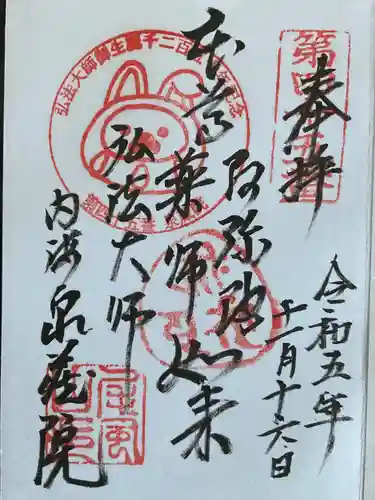 第四十五番
奉拝
令和五年
十一月十六日
本尊
阿弥陀
薬師如来
弘法大師
内海 泉蔵院
弘法大師御生誕千二百五十年記念
第四十五番